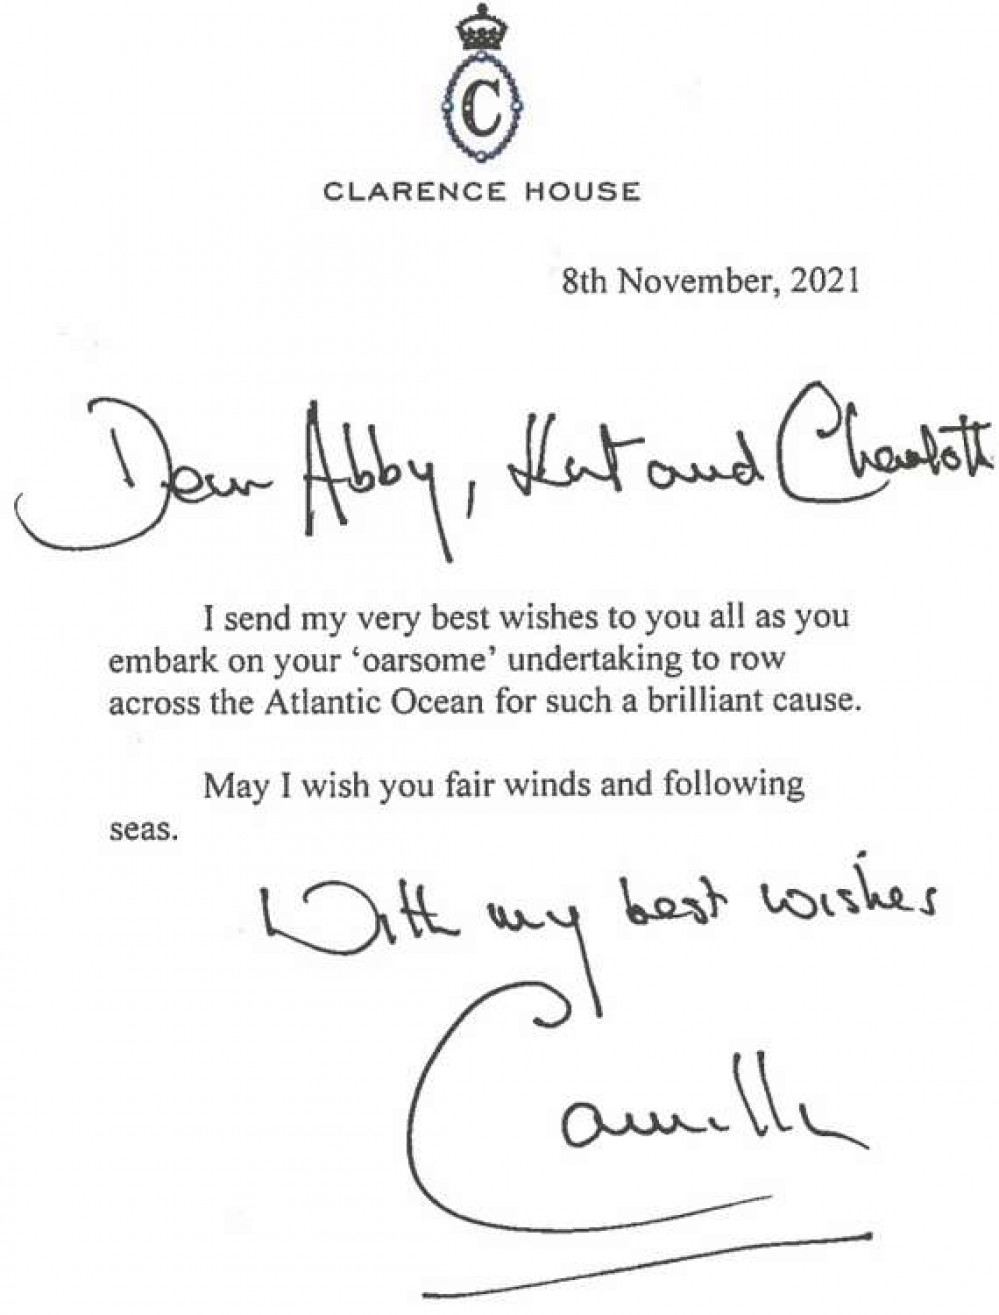 C
CLARENCE HOUSE
8th November, 2021
Dear Abby, Kat and Charlotte
I send my very best wishes to you all as you
embark on your ‘oarsome’ undertaking to row
across the Atlantic Ocean for such a brilliant cause.
May I wish you fair winds and following
seas.
With my best wishes
Camilla